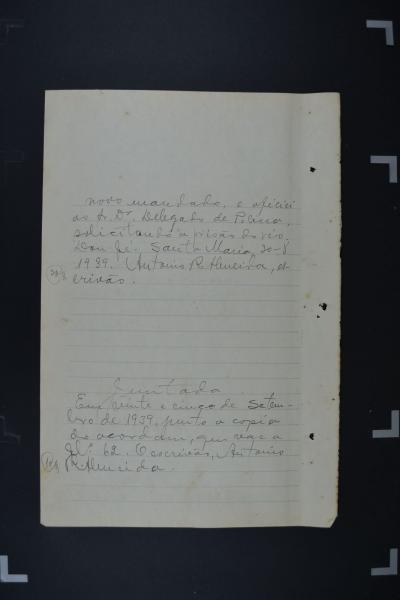 novo mandado, e oficiei
ao Sr. Dr. Delegado de Policia,
solicitando a prisão do réo.
Dou fé. Santa Maria, 30-8
1939. Antonio R. Almeida, es-
crivão.
Juntada
Em vinte e cinco de Setem-
bro de 1939, junto a copia
do acordam, que vae a
fls. 62. O escrivão, Antonio
R. Almeida.